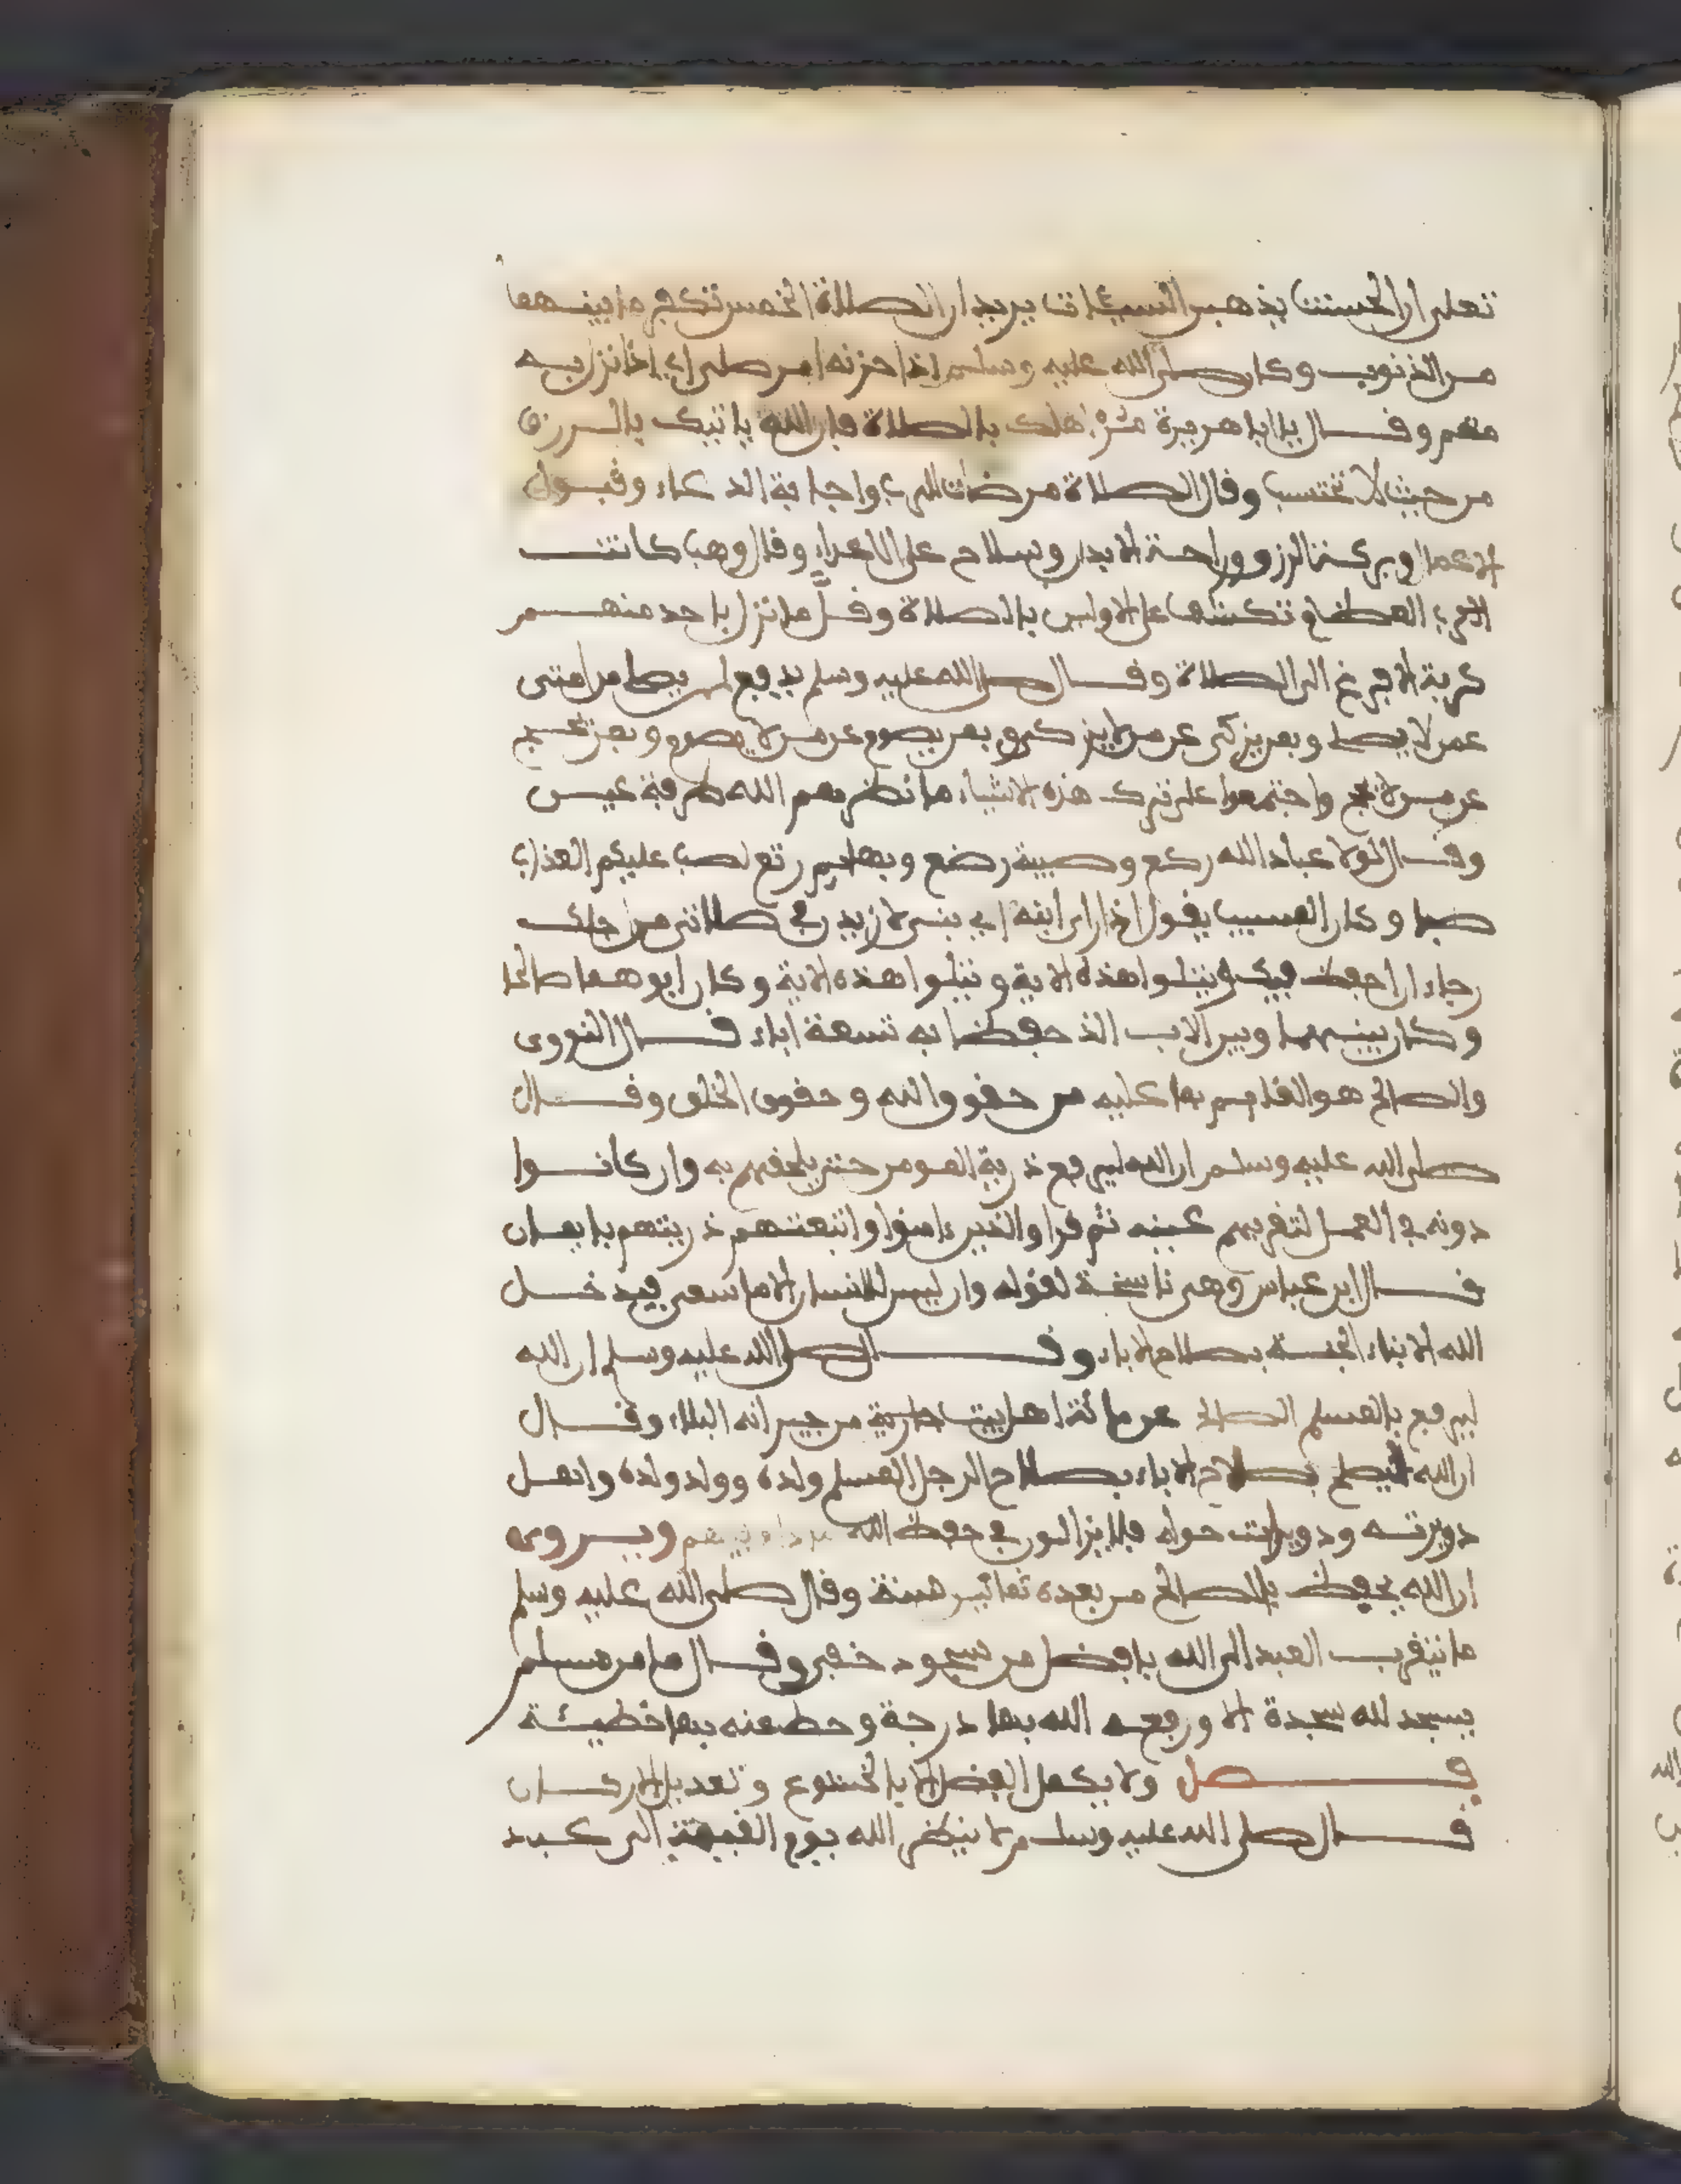 تعلى ان الحسنت يذهبن السيئات يريد ان الصلاة الخمس تكفر ما بينهما
من الذنوب وكان صلى الله عليه وسلم اذا حزنه امر صلى اي اذا نزل به
مهم وقال يا ابا هريرة مر اهلك بالصلاة فان الله ياتيك بالرزق
من حيث لا تحتسب وقال الصلاة مرضات للرب واجابة الدعاء وقبول
الاعمال وبركة الرزق وراحة الابدان وسلاح على الاعداء وقال وهب كانت
الكرب العظام تكشفها على الاولين بالصلاة وقل ما نزل باحد منهم
كربة الا فزع الى الصلاة وقال صلى الله عليه وسلم يدفع لمن يصل من امتى
عمن لا يصل وبمن يزكى عن من لا يزكى وبمن يصوم عن من لا يصوم وبمن يحج
عن من لا يحج واجتمعوا على ترك هذه الاشياء ما نظرهم الله طرفة عين
وقال لولا عباد الله ركع وصبية رضع وبهايم رتع لصب عليكم العذاب
صبا وكان المسيب يقول اذا راى ابنه اي بنى لازيدن في صلاتى من اجلك
رجاء ان احفظ فيك ويتلوا هذه الاية ويتلوا هذه الاية وكان ابوهما صالحا
وكان بينهما وبين الاب الذ حفظا به تسعة اباء قال النووى
والصالح هو القايم بما عليه من حقوق الله وحقوق الخلق وقال
صلى الله عليه وسلم ان الله ليرفع ذرية المومن حتى يلحقهم به وان كانوا
دونه في العمل لتقر بهم عينه ثم قرا والذين ءامنوا واتبعتهم ذريتهم بايمان
قال ابن عباس وهى ناسخة لقوله وان ليس للانسان الا ما سعى فيدخل
الله الابناء الجنة بصلاح الاباء وقال صلى الله عليه وسلم ان الله
ليرفع بالمسلم الصالح عن مائة اهل بيت من جيرانه البلاء وقال
ان الله ليصلح بصلاح الاباء بصلاح الرجل المسلم ولده وولد ولده واهل
دويرته ودويرات حوله فلا يزالون في حفظ الله ما دام فيهم ويروى
ان الله يحفظ بالصالح من بعده ثمانين سنة وقال صلى الله عليه وسلم
ما تقرب العبد الى الله بافضل من سجود خفى وقال ما من مسلم
يسجد لله سجدة الا ورفعه الله بها درجة وحط عنه بها خطيئة
فصل ولا يكمل الفضل الا بالخشوع وتعديل الاركان
قال صلى الله عليه وسلم لا ينظر الله يوم القيمة الى عبد